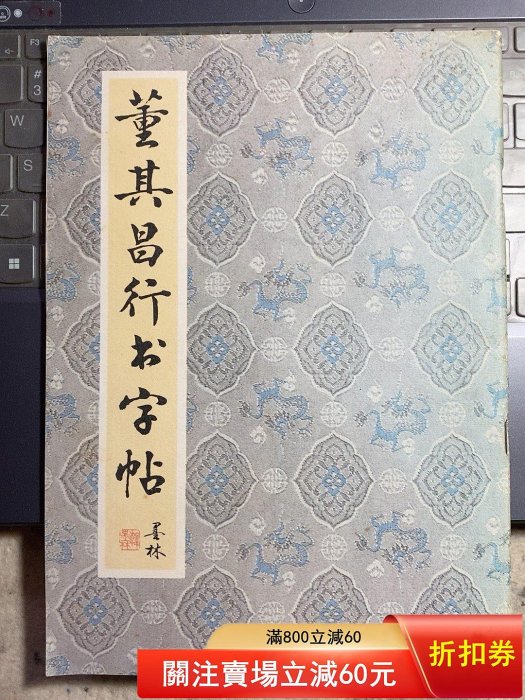 董其昌行书字帖
墨林
F3
#
3
W
S
Z
滿800立減60
關注賣場立減60元
折扣券